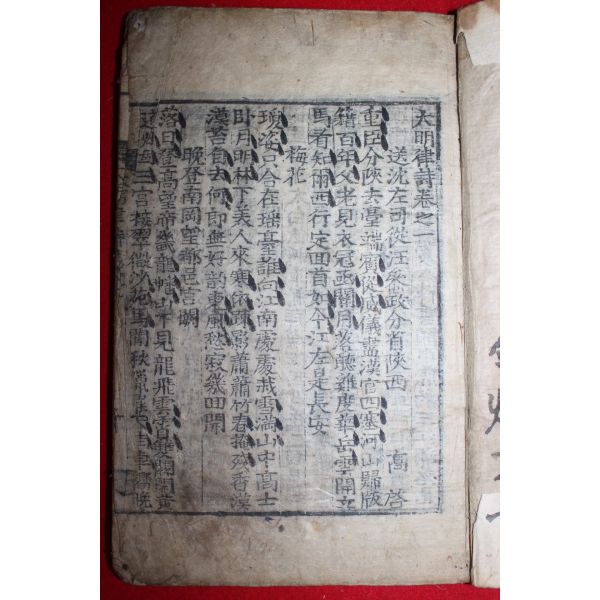 大明律詩卷之一
送沈左司從汪參政分省陝西 高啓
重臣分陝去臺端賓從威儀盡漢官四塞河山歸版
籍百年父老見衣冠函關月落聽雞度華岳雲開立
馬看知爾西行定回首如今江左是長安
梅花
瓊姿只合在瑤臺誰向江南處處栽雪滿山中高士
臥月明林下美人來寒依疎影蕭蕭竹春掩殘香漠
漠苔自去何郎無好韵東風愁寂幾回開
晚登南岡望都邑宮闕
落日登高望帝畿龍蟠山下見龍飛雲霄雙闕開黃
三宮接翠微沙苑馬閑秋車晚